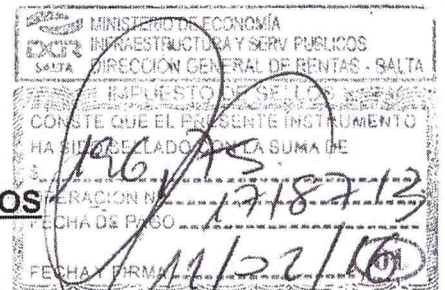 MINISTERIO DE ECONOMÍA
INFRAESTRUCTURA Y SERV PUBLICOS
DGR SALTA DIRECCIÓN GENERAL DE RENTAS - SALTA
IMPUESTO DE SELLOS
CONSTE QUE EL PRESENTE INSTRUMENTO
HA SIDO SELLADO CON LA SUMA DE
$ 196,75
OS OPERACIÓN N 1718713
FECHA DE PAGO
FECHA Y FIRMA 11/22/16